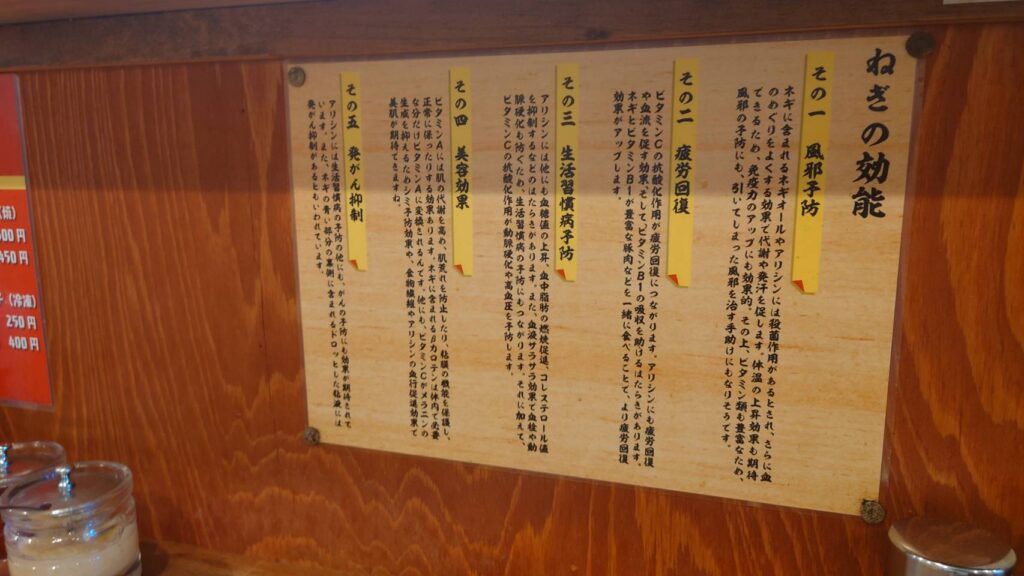 ねぎの効能
その一 風邪予防
ネギに含まれるネギオールやアリシンには殺菌作用があるとされ、さらに血
のめぐりをよくする効果で代謝や発汗を促します。体温の上昇効果も期待
できるため、免疫力のアップにも効果的。その上、ビタミン類も豊富なため、
風邪の予防にも、引いてしまった風邪を治す手助けにもなりそうです。
その二 疲労回復
ビタミンCの抗酸化作用が疲労回復につながります。アリシンにも疲労回復
や血流を促す効果、そして、ビタミンB1の吸収を助けるはたらきがあります。
ネギとビタミンB1が豊富な豚肉などを一緒に食べることで、より疲労回復
効果がアップします。
その三 生活習慣病予防
アリシンには他にも血糖値の上昇、血中脂肪の燃焼促進、コレステロール値
を抑制するなどのはたらきがあります。また、血液サラサラ効果で血栓や動
脈硬化も防ぐため、生活習慣病の予防にもつながります。それに加えて、
ビタミンCの抗酸化作用が動脈硬化や高血圧を予防します。
その四 美容効果
ビタミンAには肌の代謝を高め、肌荒れを防止したり、粘膜の機能を保護し、
正常に保ったりする効果あります。ネギに含まれるβカロテンは体内で必要
な分だけビタミンAに変換されるんです。他にも、ビタミンCがメラニンの
生成を抑えるためシミ予防効果や、食物繊維やアリシンの血行促進効果で
美肌が期待できますね。
その五 発がん抑制
アリシンには生活習慣病の予防の他にも、がんの予防にも効果が期待されて
います。また、ネギの青い部分の裏側に含まれるトロッとした粘液には
発がん抑制があるともいわれています。
00円
450円
(冷凍)
250円
400円